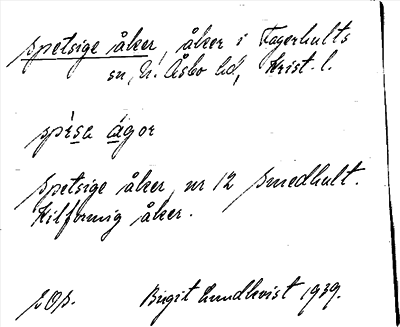 spetsige åker, åker i Fagerhults
sn, N. Åsbo hd, Krist. l.
spèsa ágor
spetsige åker nr 12 Smedhult.
Kilformig åker.
Birgit Lundkvist 1939.